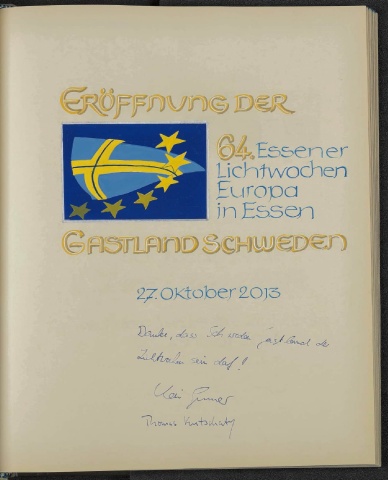 ERÖFFNUNG DER
64. Essener
Lichtwochen
Europa
in Essen
GASTLAND SCHWEDEN
27. Oktober 2013
Danke, dass Schweden Gastland der
sein darf!
Thomas